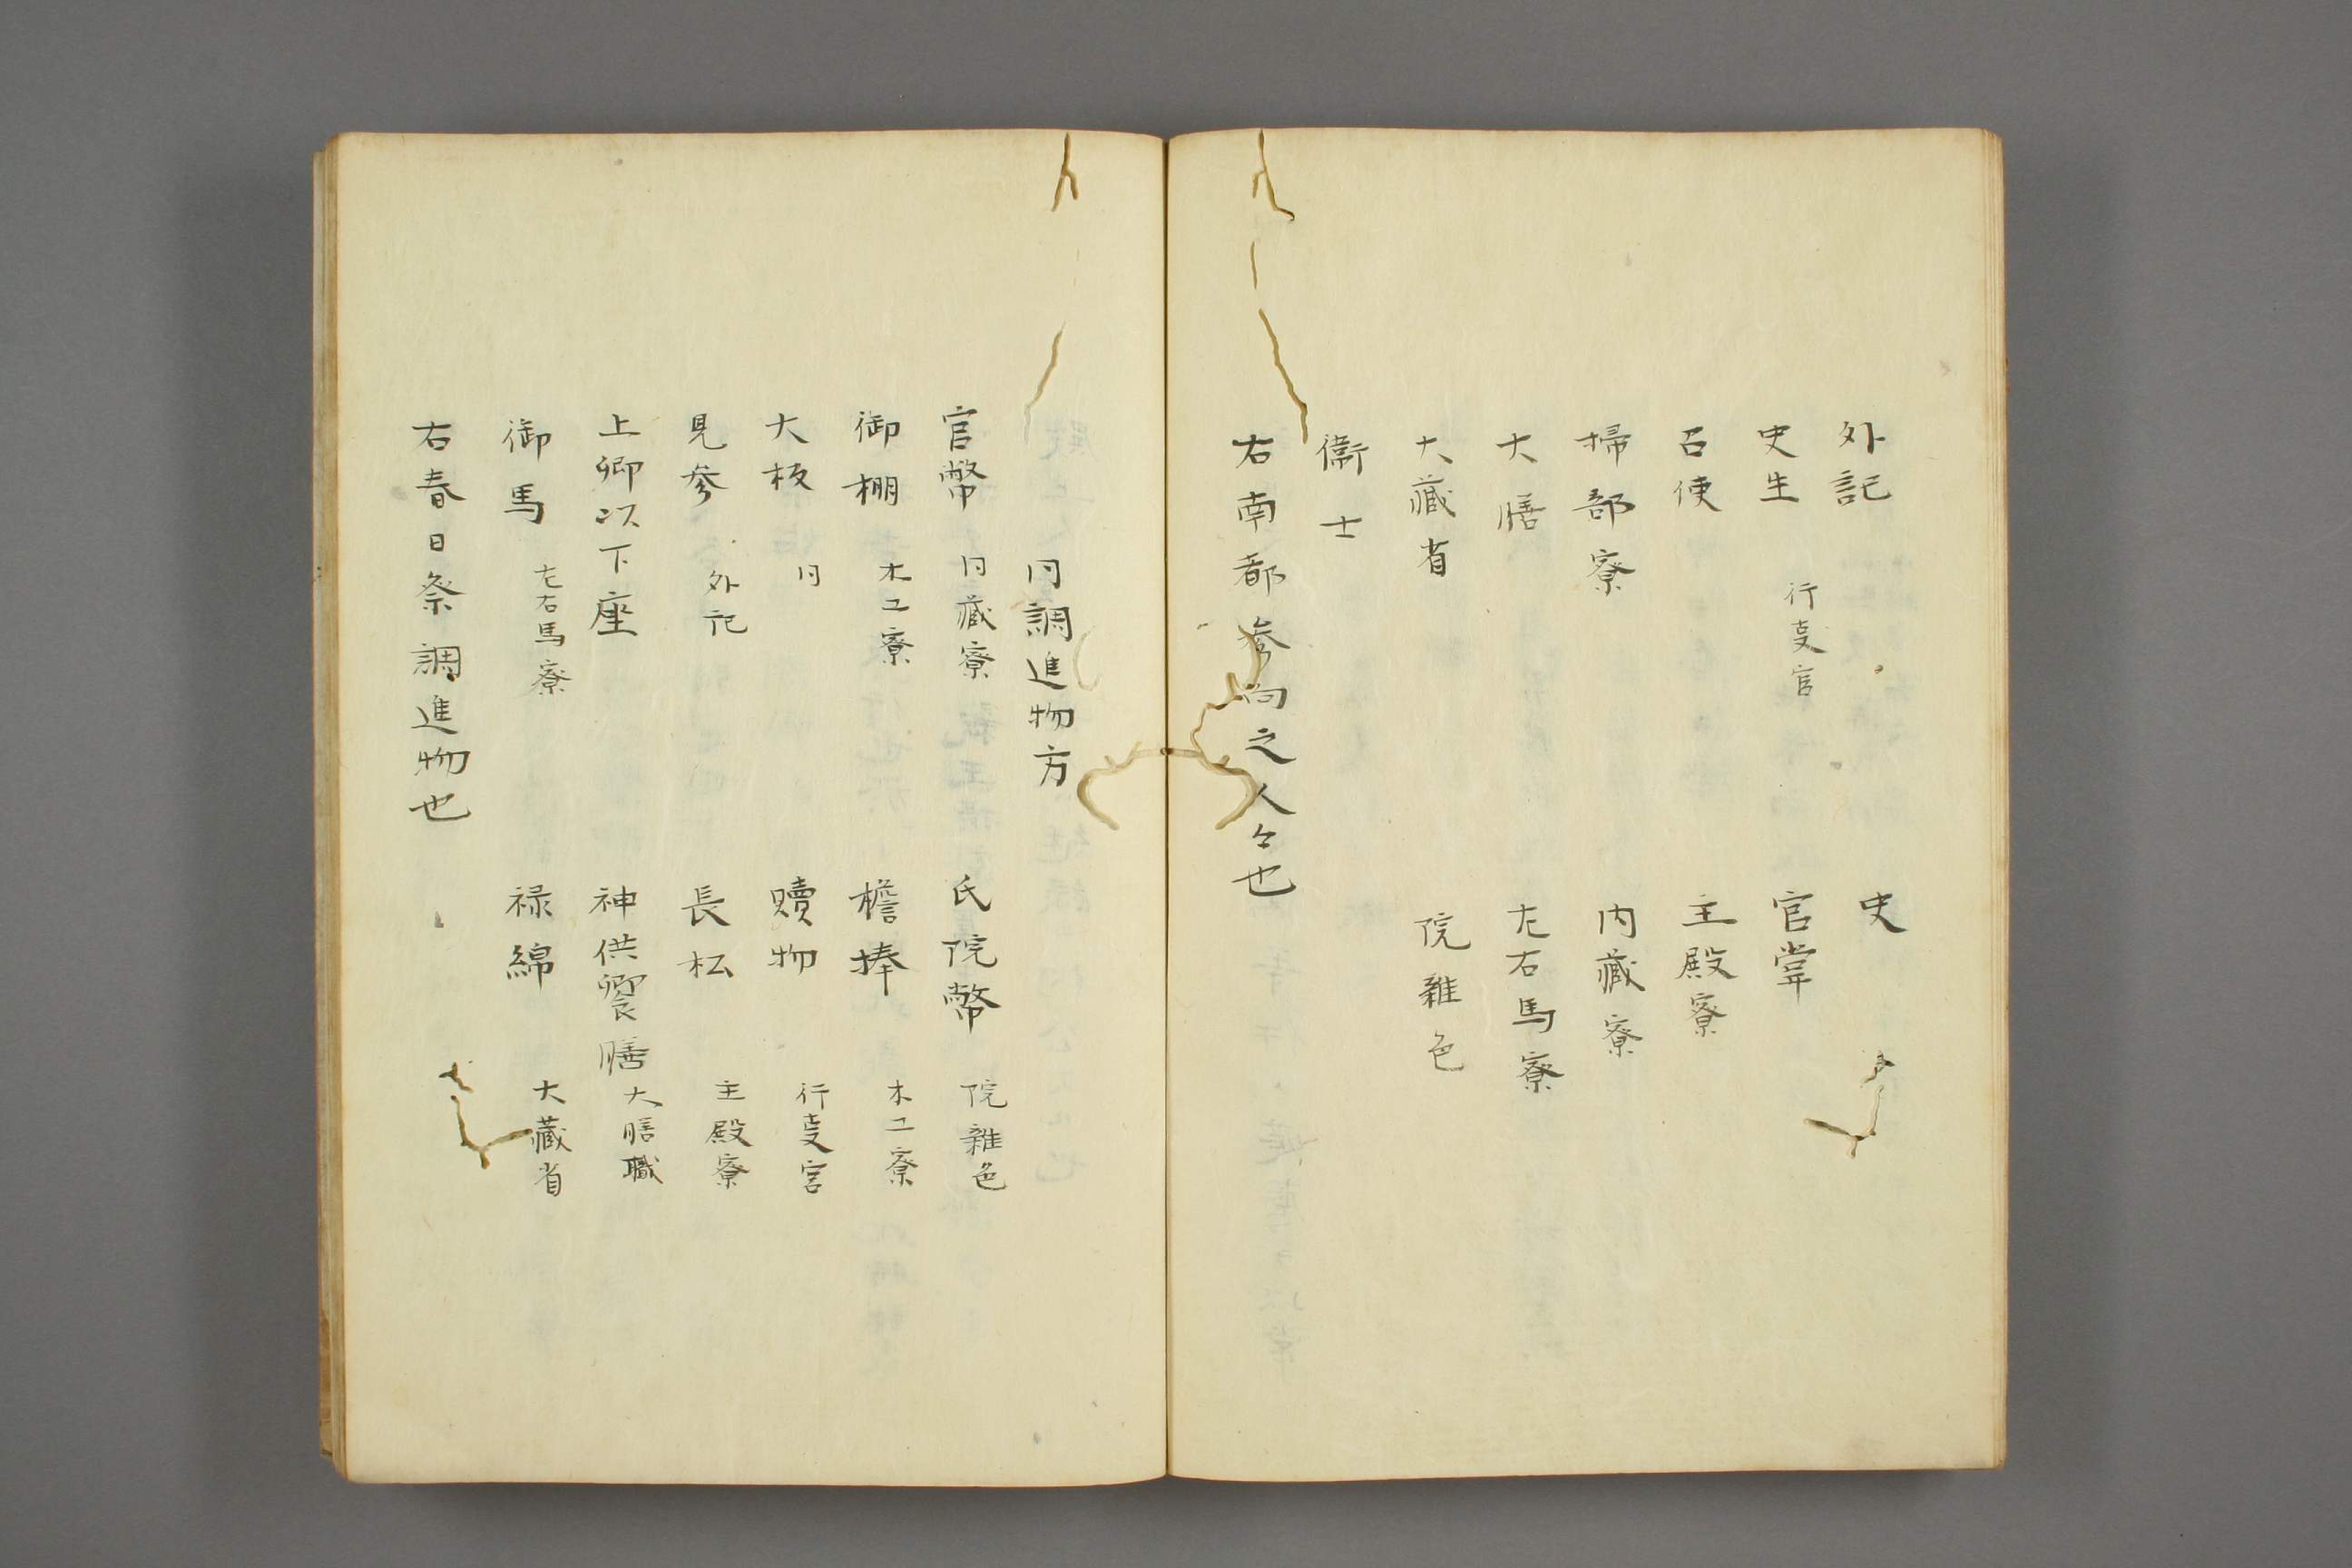 外記　史
史生　行事官　官掌
召使　主殿寮
掃部寮　内藏寮
大膳　左右馬寮
大藏省　院雜色
衞士
右南都參向之人々也
同調進物方
官幣　内藏寮　氏院幣　院雜色
御棚　木工寮　檐捧　木工寮
大板　同　贖物　行事官
見參　外記　長松　主殿寮
上卿以下座　神供饗膳　大膳職
御馬　左右馬寮　禄綿　大藏省
右春日祭調進物也